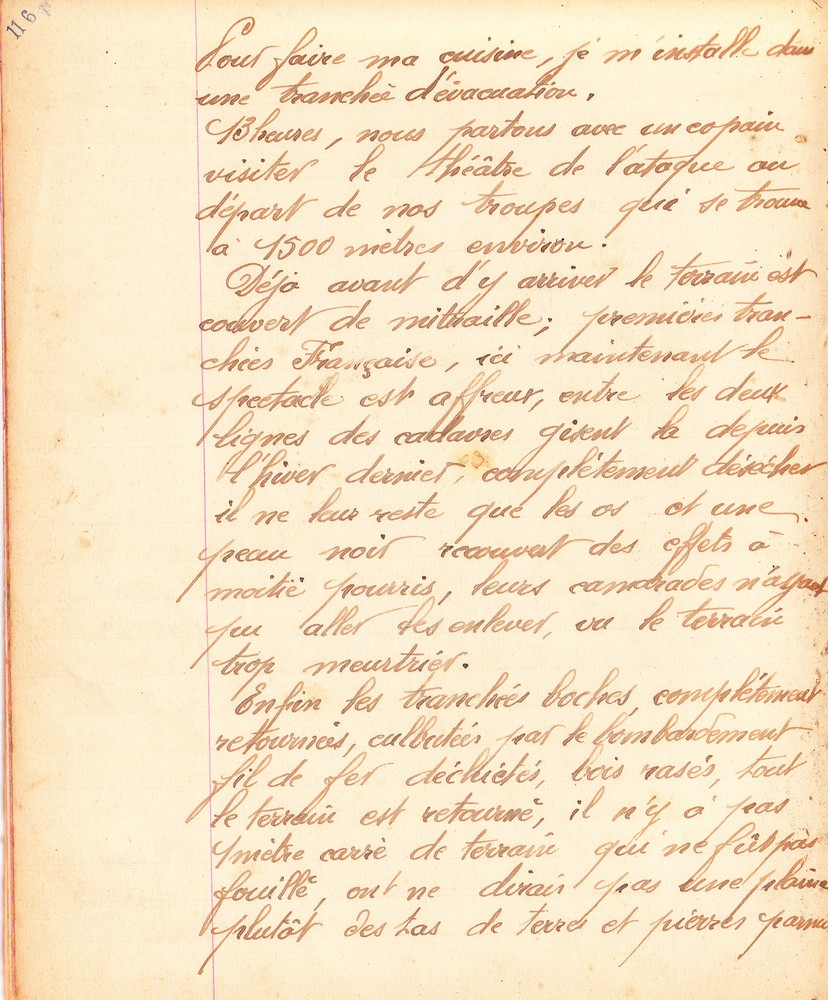 116
Pour faire ma cuisine, je m'installe dans
une tranchée d'évacuation.
13 heures, nous partons avec un copain
visiter le théâtre de l'ataque au
départ de nos troupes qui se trouve
à 1500 mètres environ.
Déjà avant d'y arriver le terrain est
couvert de mitraille; premières tran-
chées Française, ici maintenant le
spectacle est affreux, entre les deux
lignes des cadavres gisent la depuis
l'hiver dernier, complètement désécher
il ne leur reste que les os et une
peau noir recouvert des effets à
moitié pourris, leurs camarades n'ayant
pu aller les enlever, vu le terrain
trop meurtrier.
Enfin les tranchées boches, complètement
retournées, culbutées par le bombardement
fil de fer déchictés, bois rasés, tout
le terrain est retourné, il n'y à pas
1 mètre carré de terrain qui ne fût pas
fouillé, ont ne dirais pas une plaine
plutôt des tas de terres et pierres parmi